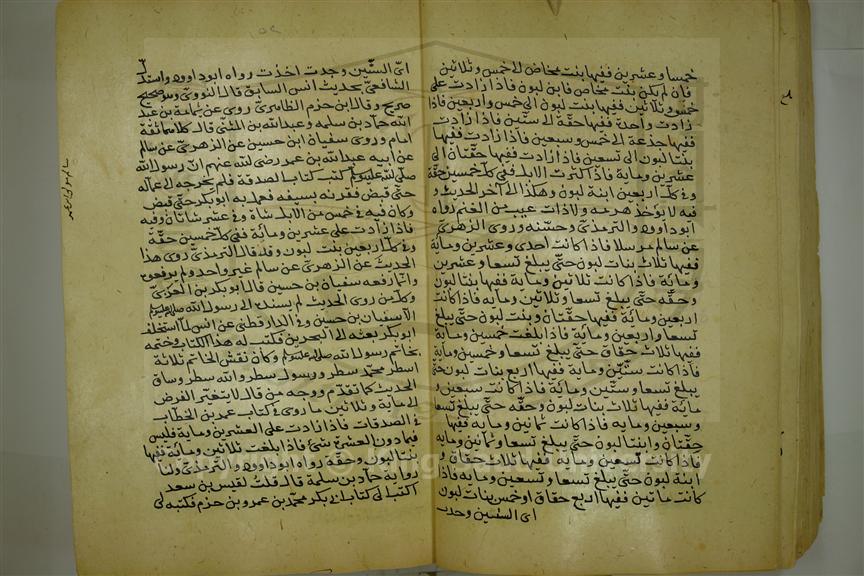 خمسا وعشرين ففيها بنت مخاض لا خمس وثلاثين
فان لم يكن بنت مخاص فابن لبون فاذا زادت على
خمس وثلاثين ففيها بنت لبون الى خمس واربعين فاذا
زادت واحدة ففيها حقة الا ستين فاذا زادت
ففيها جذعة لا خمس وسبعين فاذا زادت ففيها
بنتا لبون الى تسعين فاذا زادت ففيها حقتان الى
عشرين وماية فاذا كثرت الابل ففي كل خمسين حقة
وفي كل اربعين ابنة لبون وهكذا الى آخر الحديث و
فيه لا يؤخذ هرمة ولا ذات عيب من الغنم رواه
ابوداوود والترمذي وحسنه وروى الزهري
عن سالم مرسلا فاذا كانت احدى وعشرين وماية
ففيها ثلاث بنات لبون حتى يبلغ تسعا وعشرين
وماية فاذا كانت ثلاثين وماية ففيها بنتا لبون
وحقه حتى يبلغ تسعا وثلاثين وماية فاذا كانت
اربعين وماية ففيها حقتان وبنت لبون حتى يبلغ
تسعا واربعين وماية فاذا بلغت خمسين وماية
ففيها ثلاث حقاق حتى يبلغ تسعا وخمسين وماية
فاذا كانت ستين وماية ففيها اربع بنات لبون حتى
يبلغ تسعا وستين وماية فاذا كانت سبعين و
ماية ففيها ثلاث بنات لبون وحقه حتى يبلغ تسعا
وسبعين وماية فاذا كانت ثمانين وماية ففيها
حقتان وابنتا لبون حتى يبلغ تسعا وثمانين وماية
فاذا كانت تسعين وماية ففيها ثلاث حقاق و
ابنة لبون حتى يبلغ تسعا وتسعين وماية فاذا
كانت ماتين ففيها اربع حقاق او خمس بنات لبون
اى السنين وجدت
اىّ السنّين وجدت اخذت رواه ابوداوود واستدل
الشافعي بحديث انس السابق قال النووي وهو صحيح
صريح وقال ابن حزم الظاهري روى عن ثمامة بن عبد
الله حماد بن سلمه وعبدالله بن المثنى قال كلاهما ثقة
امام وروى سفيان ابن حسين عن الزهري عن سالم
عن ابيه عبدالله بن عمر رضى الله عنهم انّ رسول الله
صلى الله عليه وسلم كتب كتاب الصدقة فلم يخرجه الى عماله
حتى قبض فقرنه بسيفه فعمل به ابوبكر حتى قبض
وكان فيه في خمس من الابل شاة وفي عشر شاتان وفيه
فاذا زادت على عشرين وماية ففي كل خمسين حقة
وفي كل اربعين بنت لبون وقد قال الترمذي روى هذا
الحديث عن الزهري عن سالم غير واحد ولم يرفعوه
وانما رفعه سفيان بن حسين قال ابوبكر بن العربي
وكل من روى الحديث لم يسنده الى رسول الله صلى الله عليه وسلم
الا سفيان بن حسين وفي الدارقطني عن انس لما استخلف
ابوبكر بعثه الى البحرين فكتب له هذا الكتاب وختمه
بخاتم رسول الله صلى الله عليه وسلم وكان نقش الخاتم ثلاثة
اسطر محمد سطر ورسول سطر والله سطر وساق
الحديث كما تقدّم ووجه من قال لا يتغير الفرض
الى ماية وثلاثين ما روى في كتاب عمر بن الخطاب
في الصدقات فاذا زادت على العشرين وماية فليس
فيما دون العشر شئ فاذا بلغت ثلاثين وماية ففيها
بنتا لبون وحقه رواه ابوداوود والترمذي ولنا
رواية حماد بن سلمة قال قلت لقيس بن سعد
اكتب لى كتاب ابى بكر محمد بن عمرو بن حزم فكتبه لى